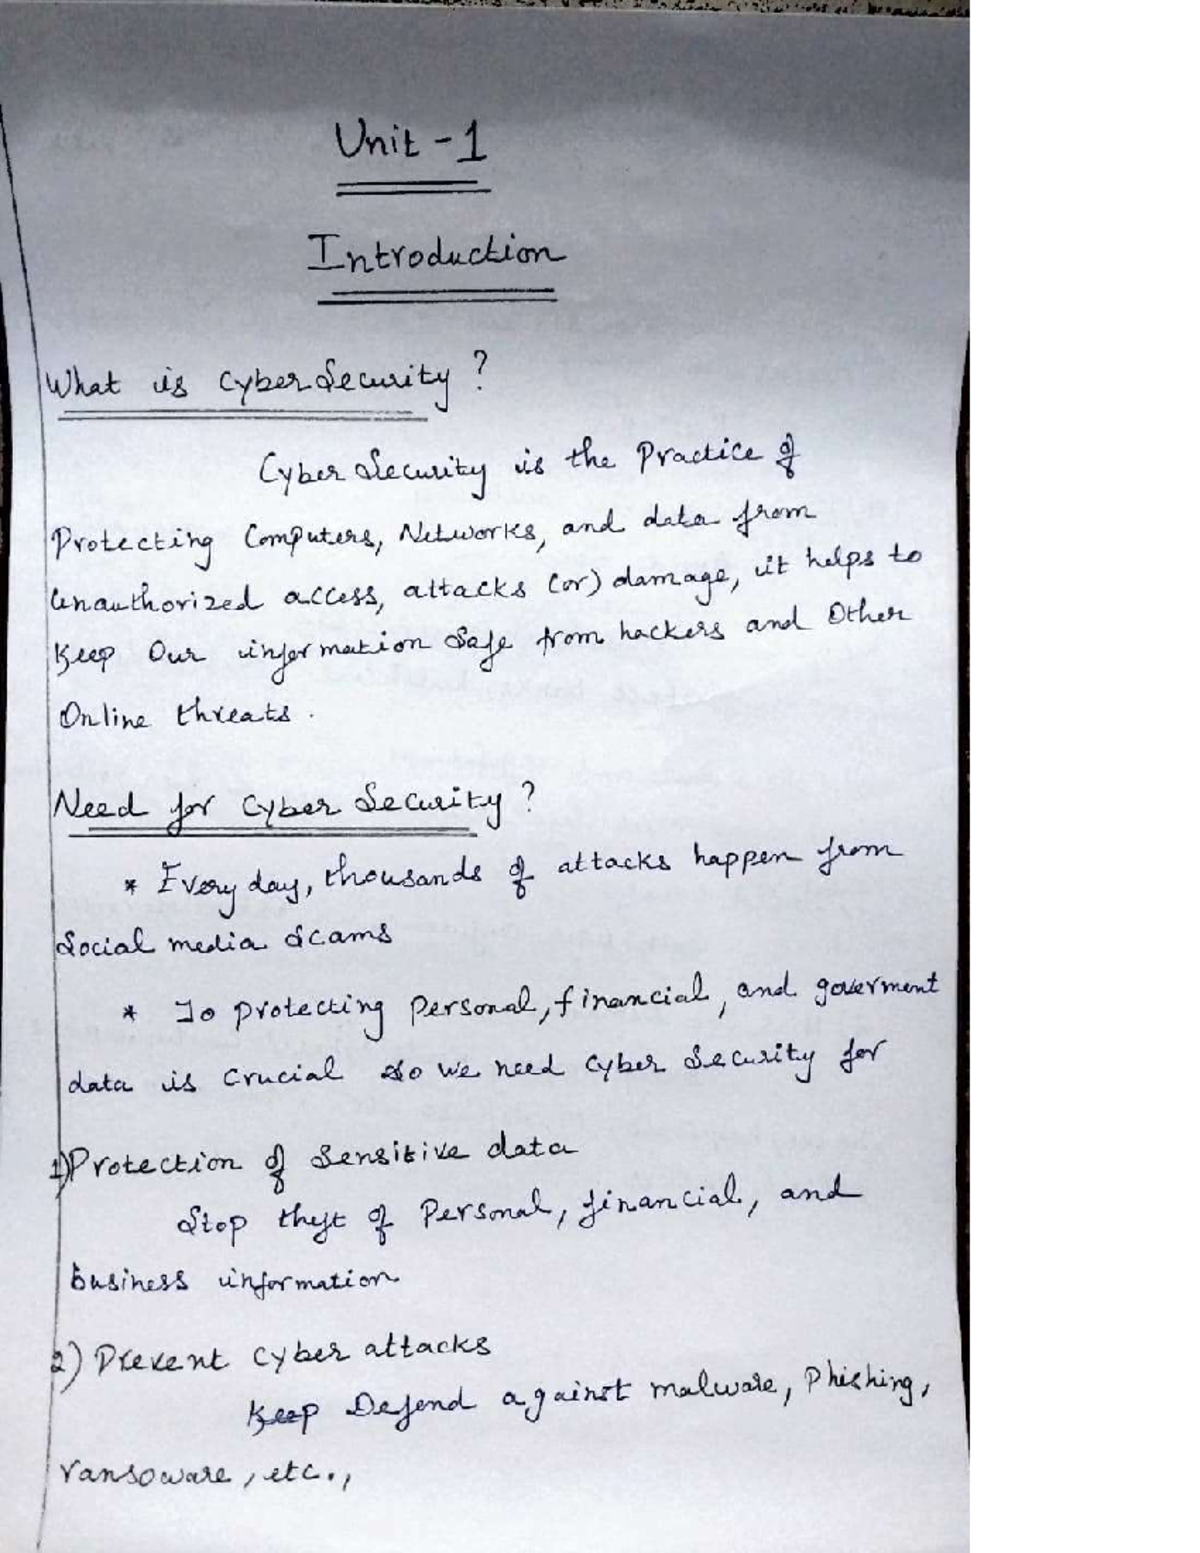 Unit - 1
Introduction
What is Cyber Security ?
Cyber Security is the Practice of
Protecting Computers, Networks, and data from
unauthorized access, attacks (or) damage, it helps to
Keep Our information Safe from hackers and Other
Online threats.
Need for Cyber Security ?
* Every day, thousands of attacks happen from
Social media Scams
* To protecting Personal, financial, and goverment
data is Crucial so we need Cyber Security for
1) Protection of Sensitive data
Stop theft of Personal, financial, and
business information
2) Prevent Cyber attacks
Keep Defend against malware, Phishing,
ransoware, etc.,